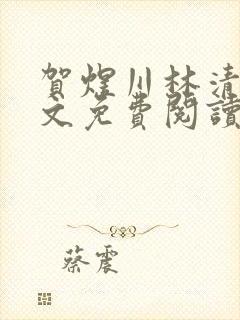 賀煜川林清
文免費閱讀
蔡震